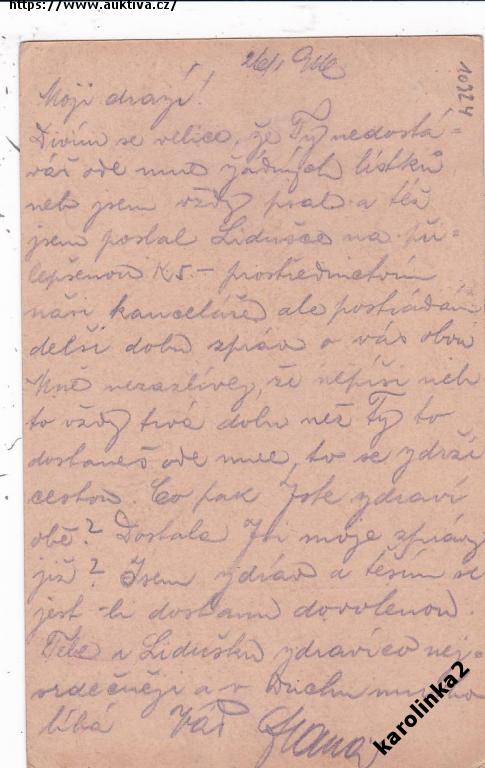 https://www.auktiva.cz/
26/1 916
10324
Moji drazí!
Divím se velice, že Ty nedostá-
váš ode mne žádných lístků
neb jsem vždy psal a též
jsem poslal Lidušce na při-
lepšenou K 5.- prostřednictvím
naší kanceláře ale postrádám
delší dobu zpráv o vás obou
Mně nezazlívej, že nepíši neb
to vždy trvá dobu než Ty to
dostaneš ode mne, to se zdrží
cestou. Co pak Jste zdraví
obě? Dostala Jsi moje zprávy
již? Jsem zdráv a těším se
jest-li dostanu dovolenou.
Tebe i Lidušku zdravíce nej-
srdečněji a v duchu
líbá Váš
karolinka2